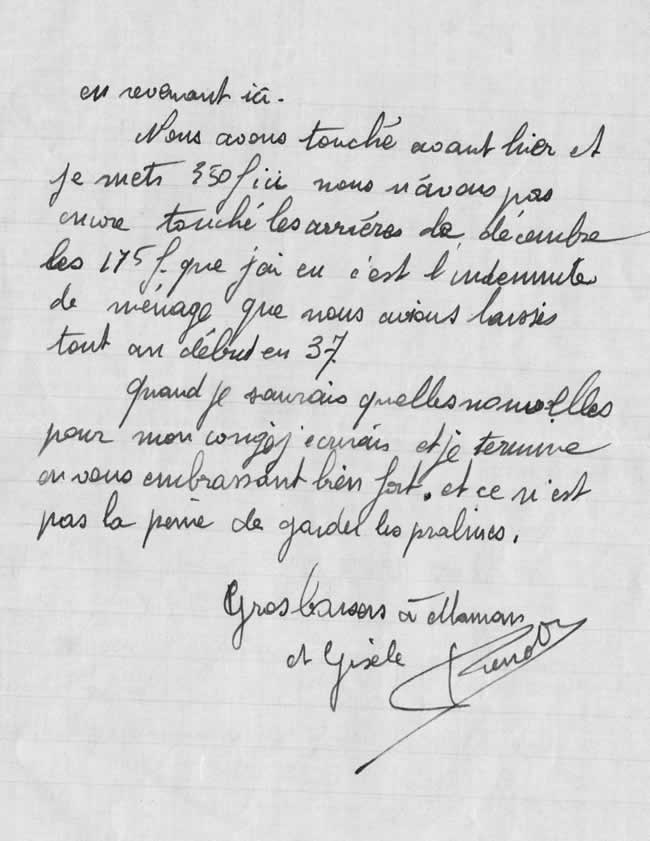 en revenant ici.
Nous avons touché avant hier et
je mets 350f ici nous n'avons pas
encore touché les arriérés de décembre
les 175 f. que j'ai eu c'est l'indemnité
de ménage que nous avions laissés
tout au début en 37.
Quand je saurais quelles nouvelles
pour mon congé j'ecrirais et je termine
en vous embrassant bien fort. et ce n'est
pas la peine de garder les pralines.
Gros baisers à Maman
et Gisèle